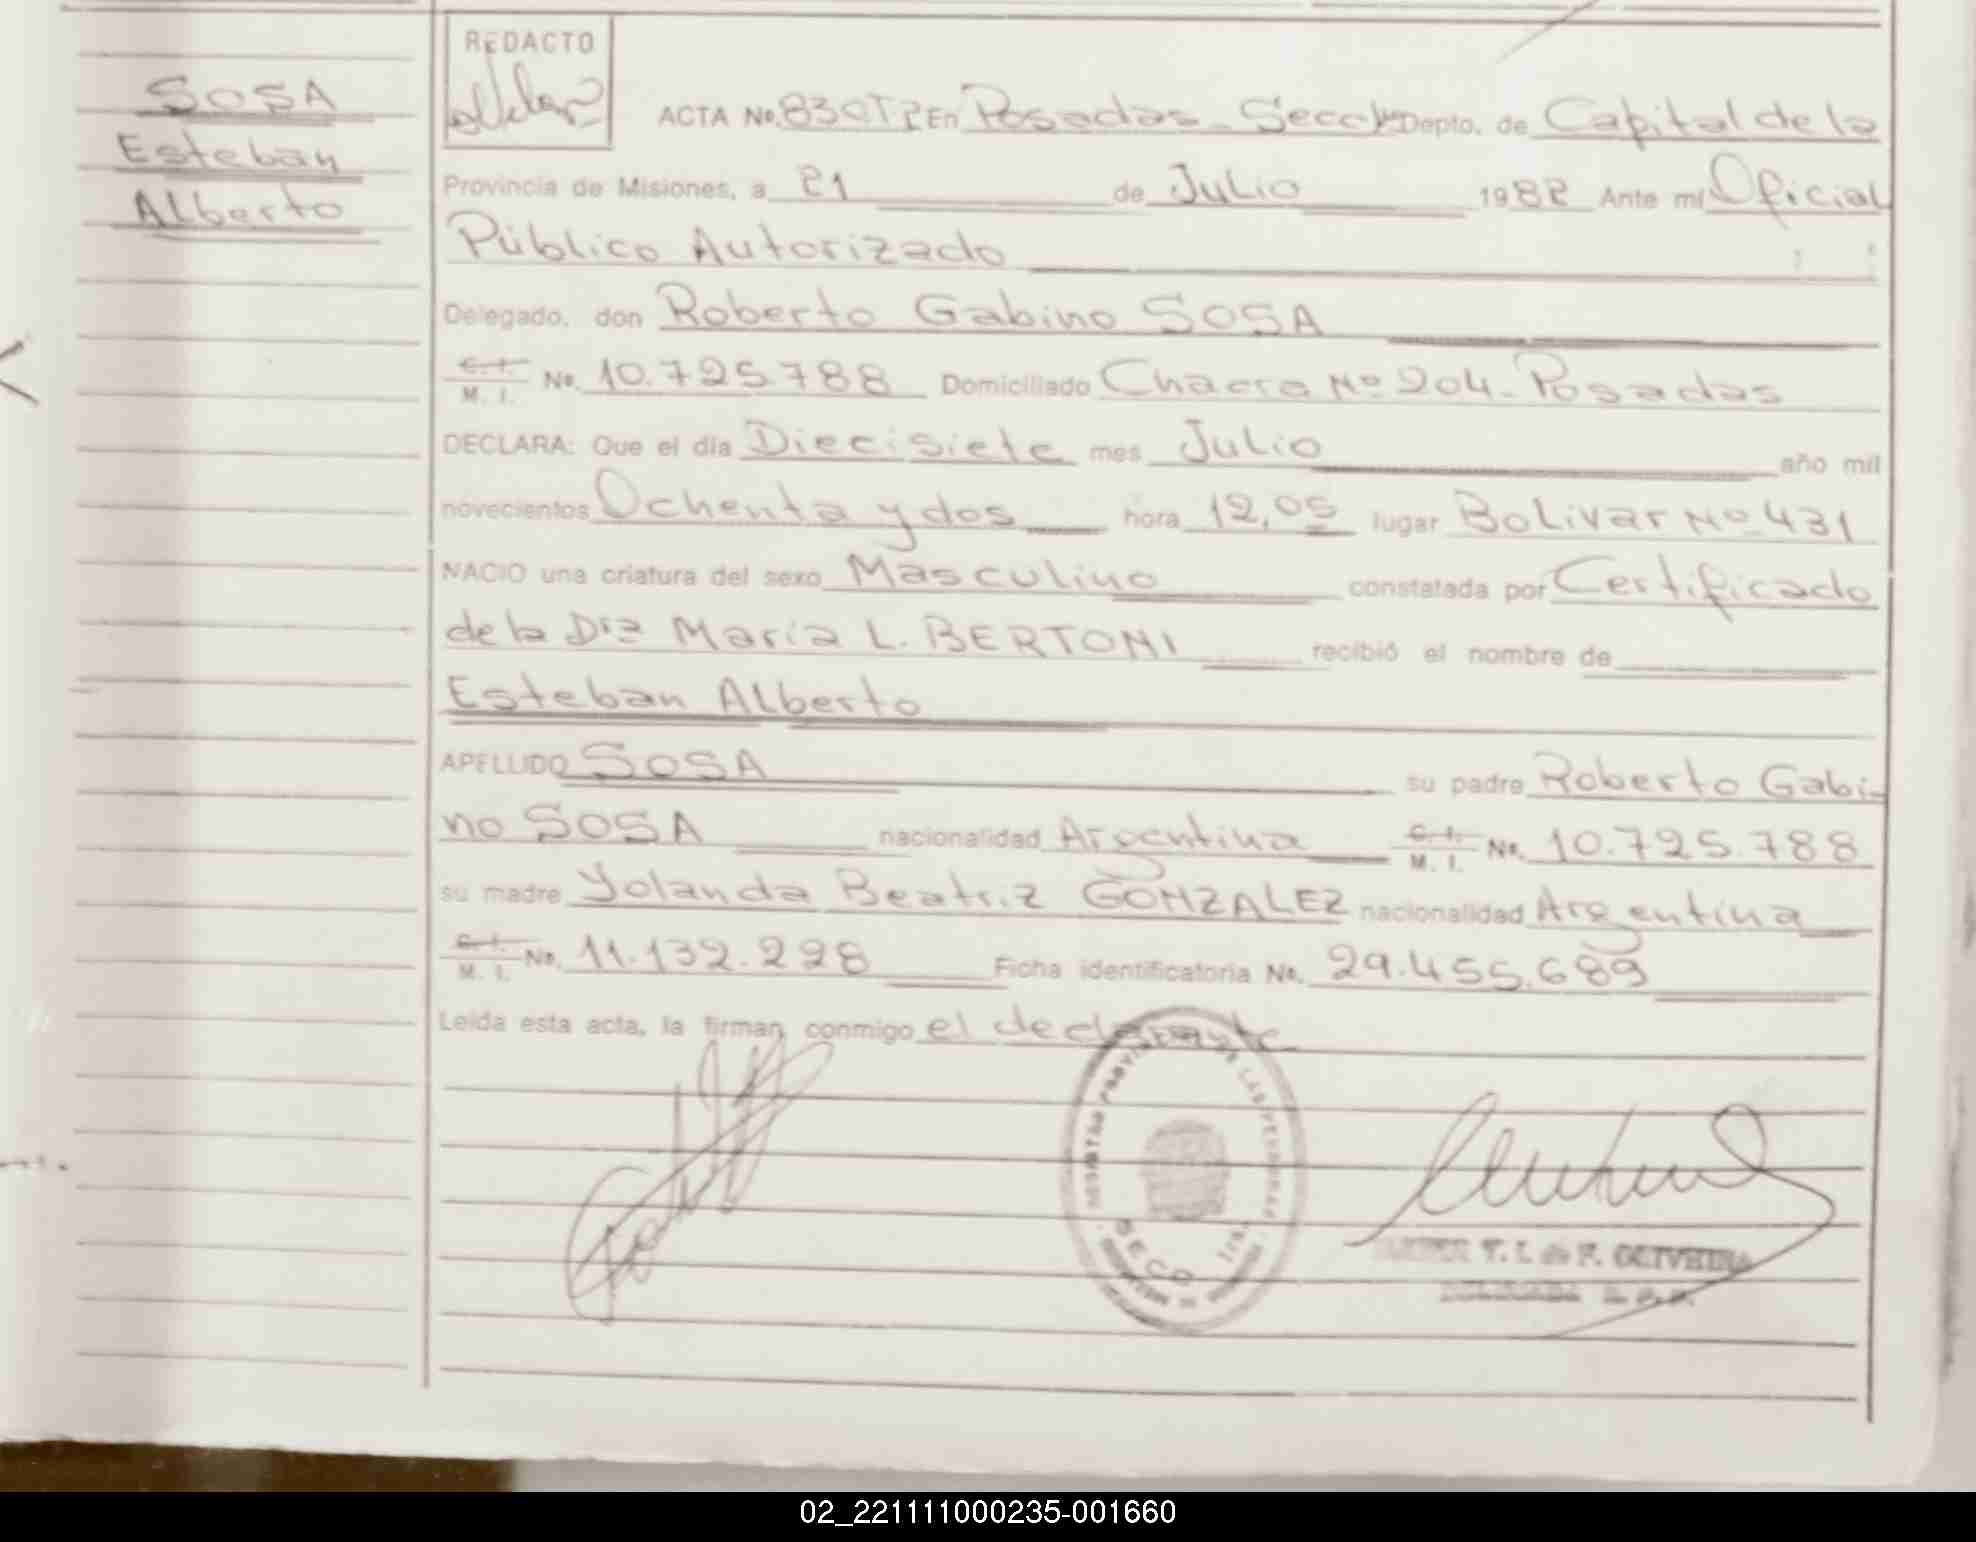 SOSA
Esteban
Alberto
REDACTO
ACTA No. 830T2 En Posadas - Secc 1ª Depto. de Capital de la
Provincia de Misiones, a 21 de Julio 1982 Ante mí Oficial
Público Autorizado
Delegado, don Roberto Gabino SOSA
C. I. M. I. No. 10.725.788 Domiciliado Chacra Nº 204 - Posadas
DECLARA: Que el día Diecisiete mes Julio año mil
novecientos Ochenta y dos hora 12,05 lugar Bolivar Nº 431
NACIO una criatura del sexo Masculino constatada por Certificado
de la Dra María L. BERTONI recibió el nombre de
Esteban Alberto
APELLIDO SOSA su padre Roberto Gabi-
no SOSA nacionalidad Argentina C. I. M. I. No. 10.725.788
su madre Yolanda Beatriz GONZALEZ nacionalidad Argentina
C. I. M. I. No. 11.132.228 Ficha identificatoria No. 29.455.689
Leída esta acta, la firman conmigo el declarante
REGISTRO PROVINCIAL DE LAS PERSONAS
SECC 1ra.
T. I. de F. OLIVEIRA
DELEGADA
02_221111000235-001660